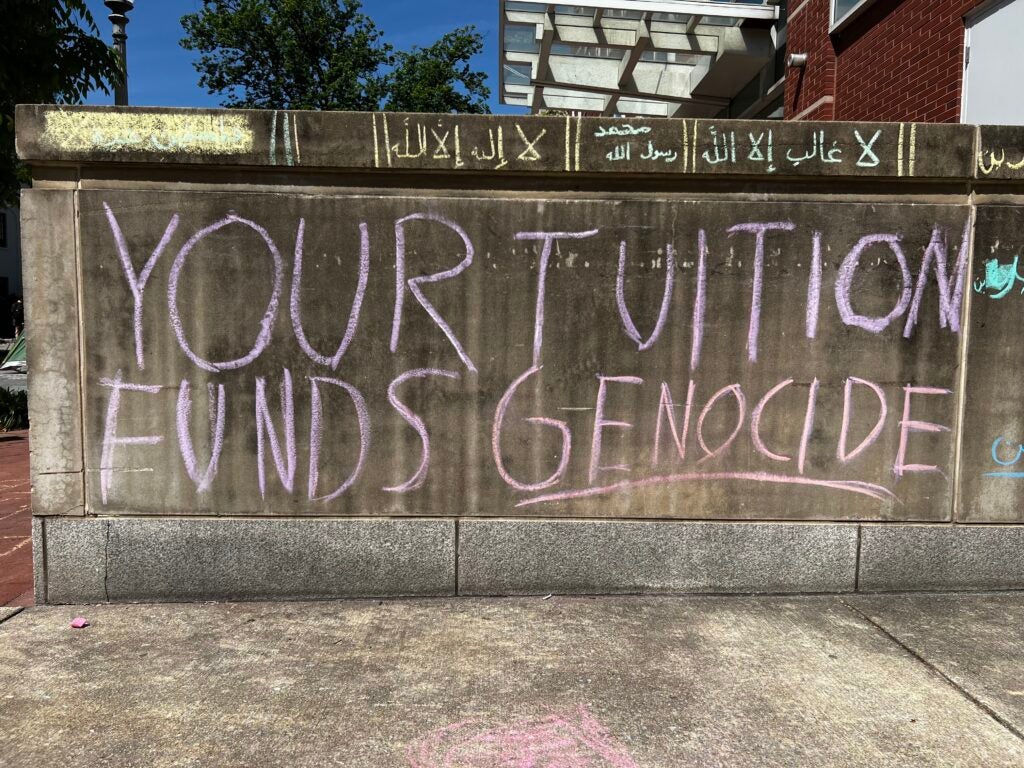 لا غالب إلا الله
محمد
رسول الله
لا إله إلا الله
YOUR TUITION
FUNDS GENOCIDE